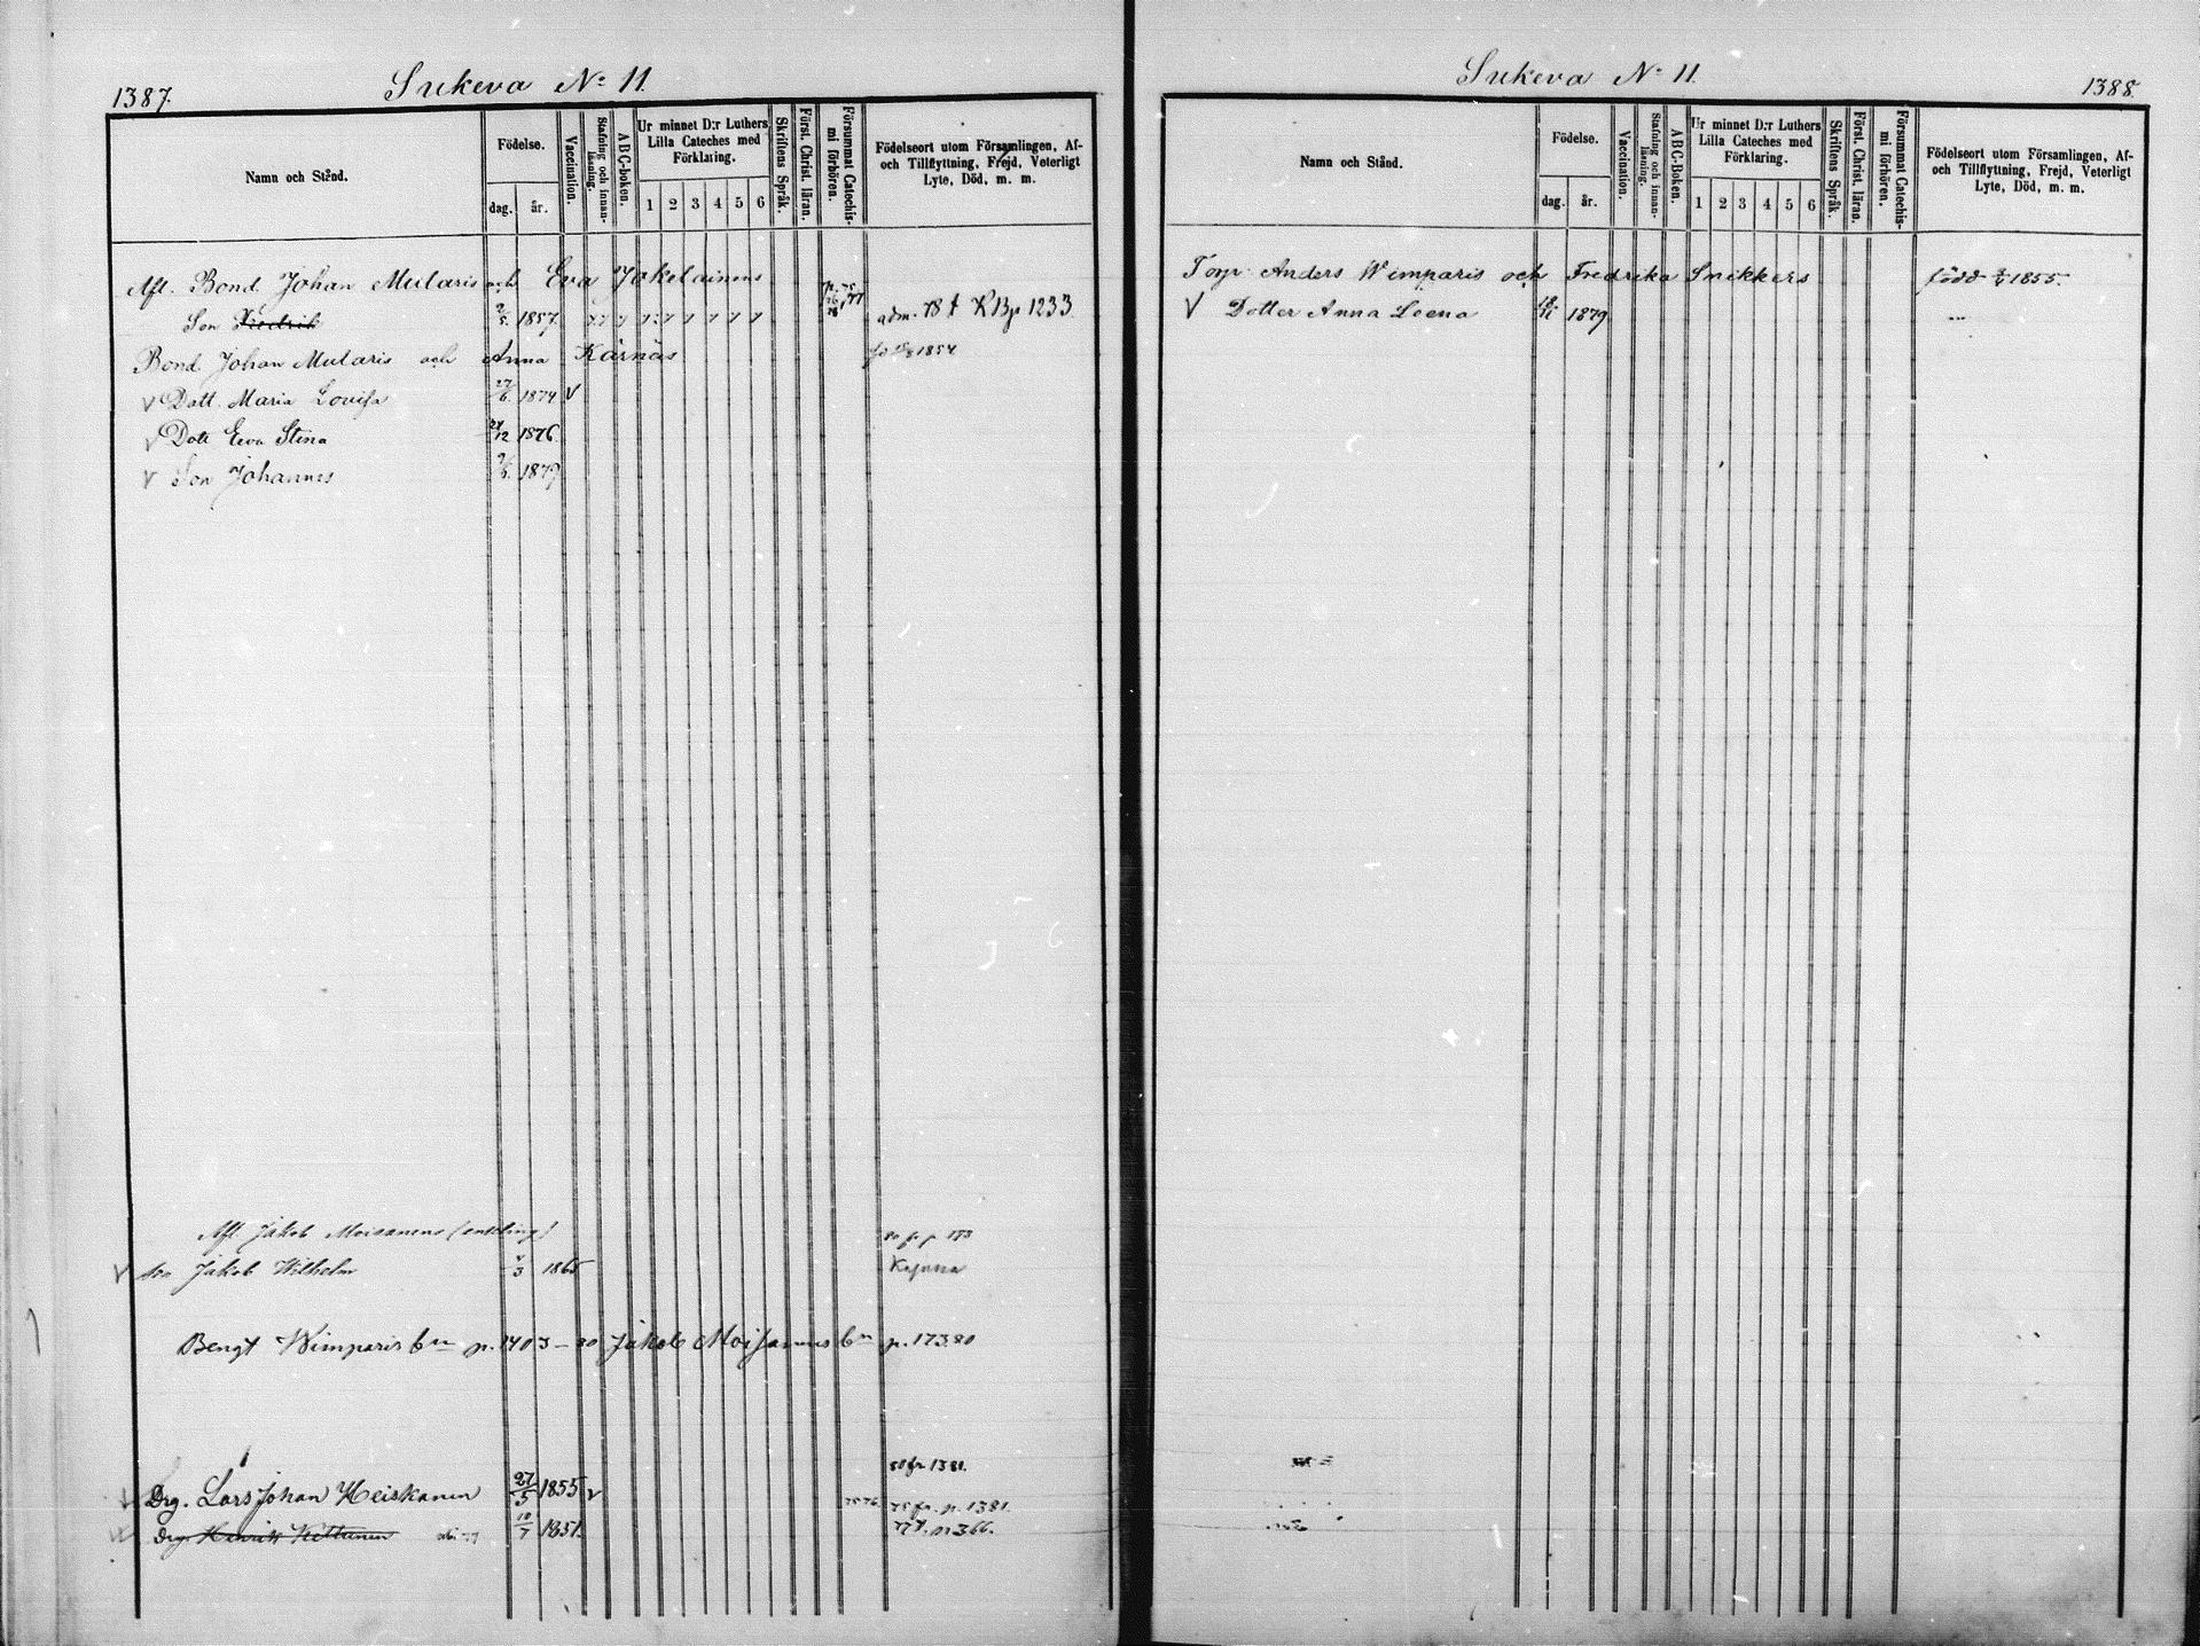 1387.
Sukeva No 11.
Namn och Stånd.
Födelse.
dag.
år.
Vaccination.
Stafning och innan-läsning.
ABC-boken.
Ur minnet D:r Luthers
Lilla Cateches med
Förklaring.
1 2 3 4 5 6
Skriftens Språk.
Först. Christ. läran.
Försummat Catechis-mi förhören.
Födelseort utom Församlingen, Af-
och Tillflyttning, Frejd, Veterligt
Lyte, Död, m. m.
Afl. Bond Johan Mularis och Eva Jokelainens
Son Fredrik 2/5. 1857. adm. 78 t KBp 1233
Bond Johan Mularis och Anna Kärnäs 1854
V Dott. Maria Lovisa 27/6. 1874 V
V Dott Eeva Stina 24/12 1876
V Son Johannes 9/6. 1879
Afl. Jakob Moisanens (enkling)
V Son Jakob Wilhelm 4/3 1865 Kajana
Bengt Wimparis bn p. 1403-80 Jakob Moisanens bn p. 173.80
80 fr 1381.
Drg. Lars Johan Heiskanen 27/5 1855 v 75 76. 75 fr. p. 1381.
Drg. Henrik Kettunen 10/7 1851. 77 t. p. 366.
Sukeva No 11.
1388.
Namn och Stånd.
Födelse.
dag.
år.
Vaccination.
Stafning och innan-läsning.
ABC-Boken.
Ur minnet D:r Luthers
Lilla Cateches med
Förklaring.
1 2 3 4 5 6
Skriftens Språk.
Först. Christ. läran.
Försummat Catechis-mi förhören.
Födelseort utom Församlingen, Af-
och Tillflyttning, Frejd, Veterligt
Lyte, Död, m. m.
Torp. Anders Wimparis och Fredrika Snikkers född 1855.
V Dotter Anna Leena 18/11 1879